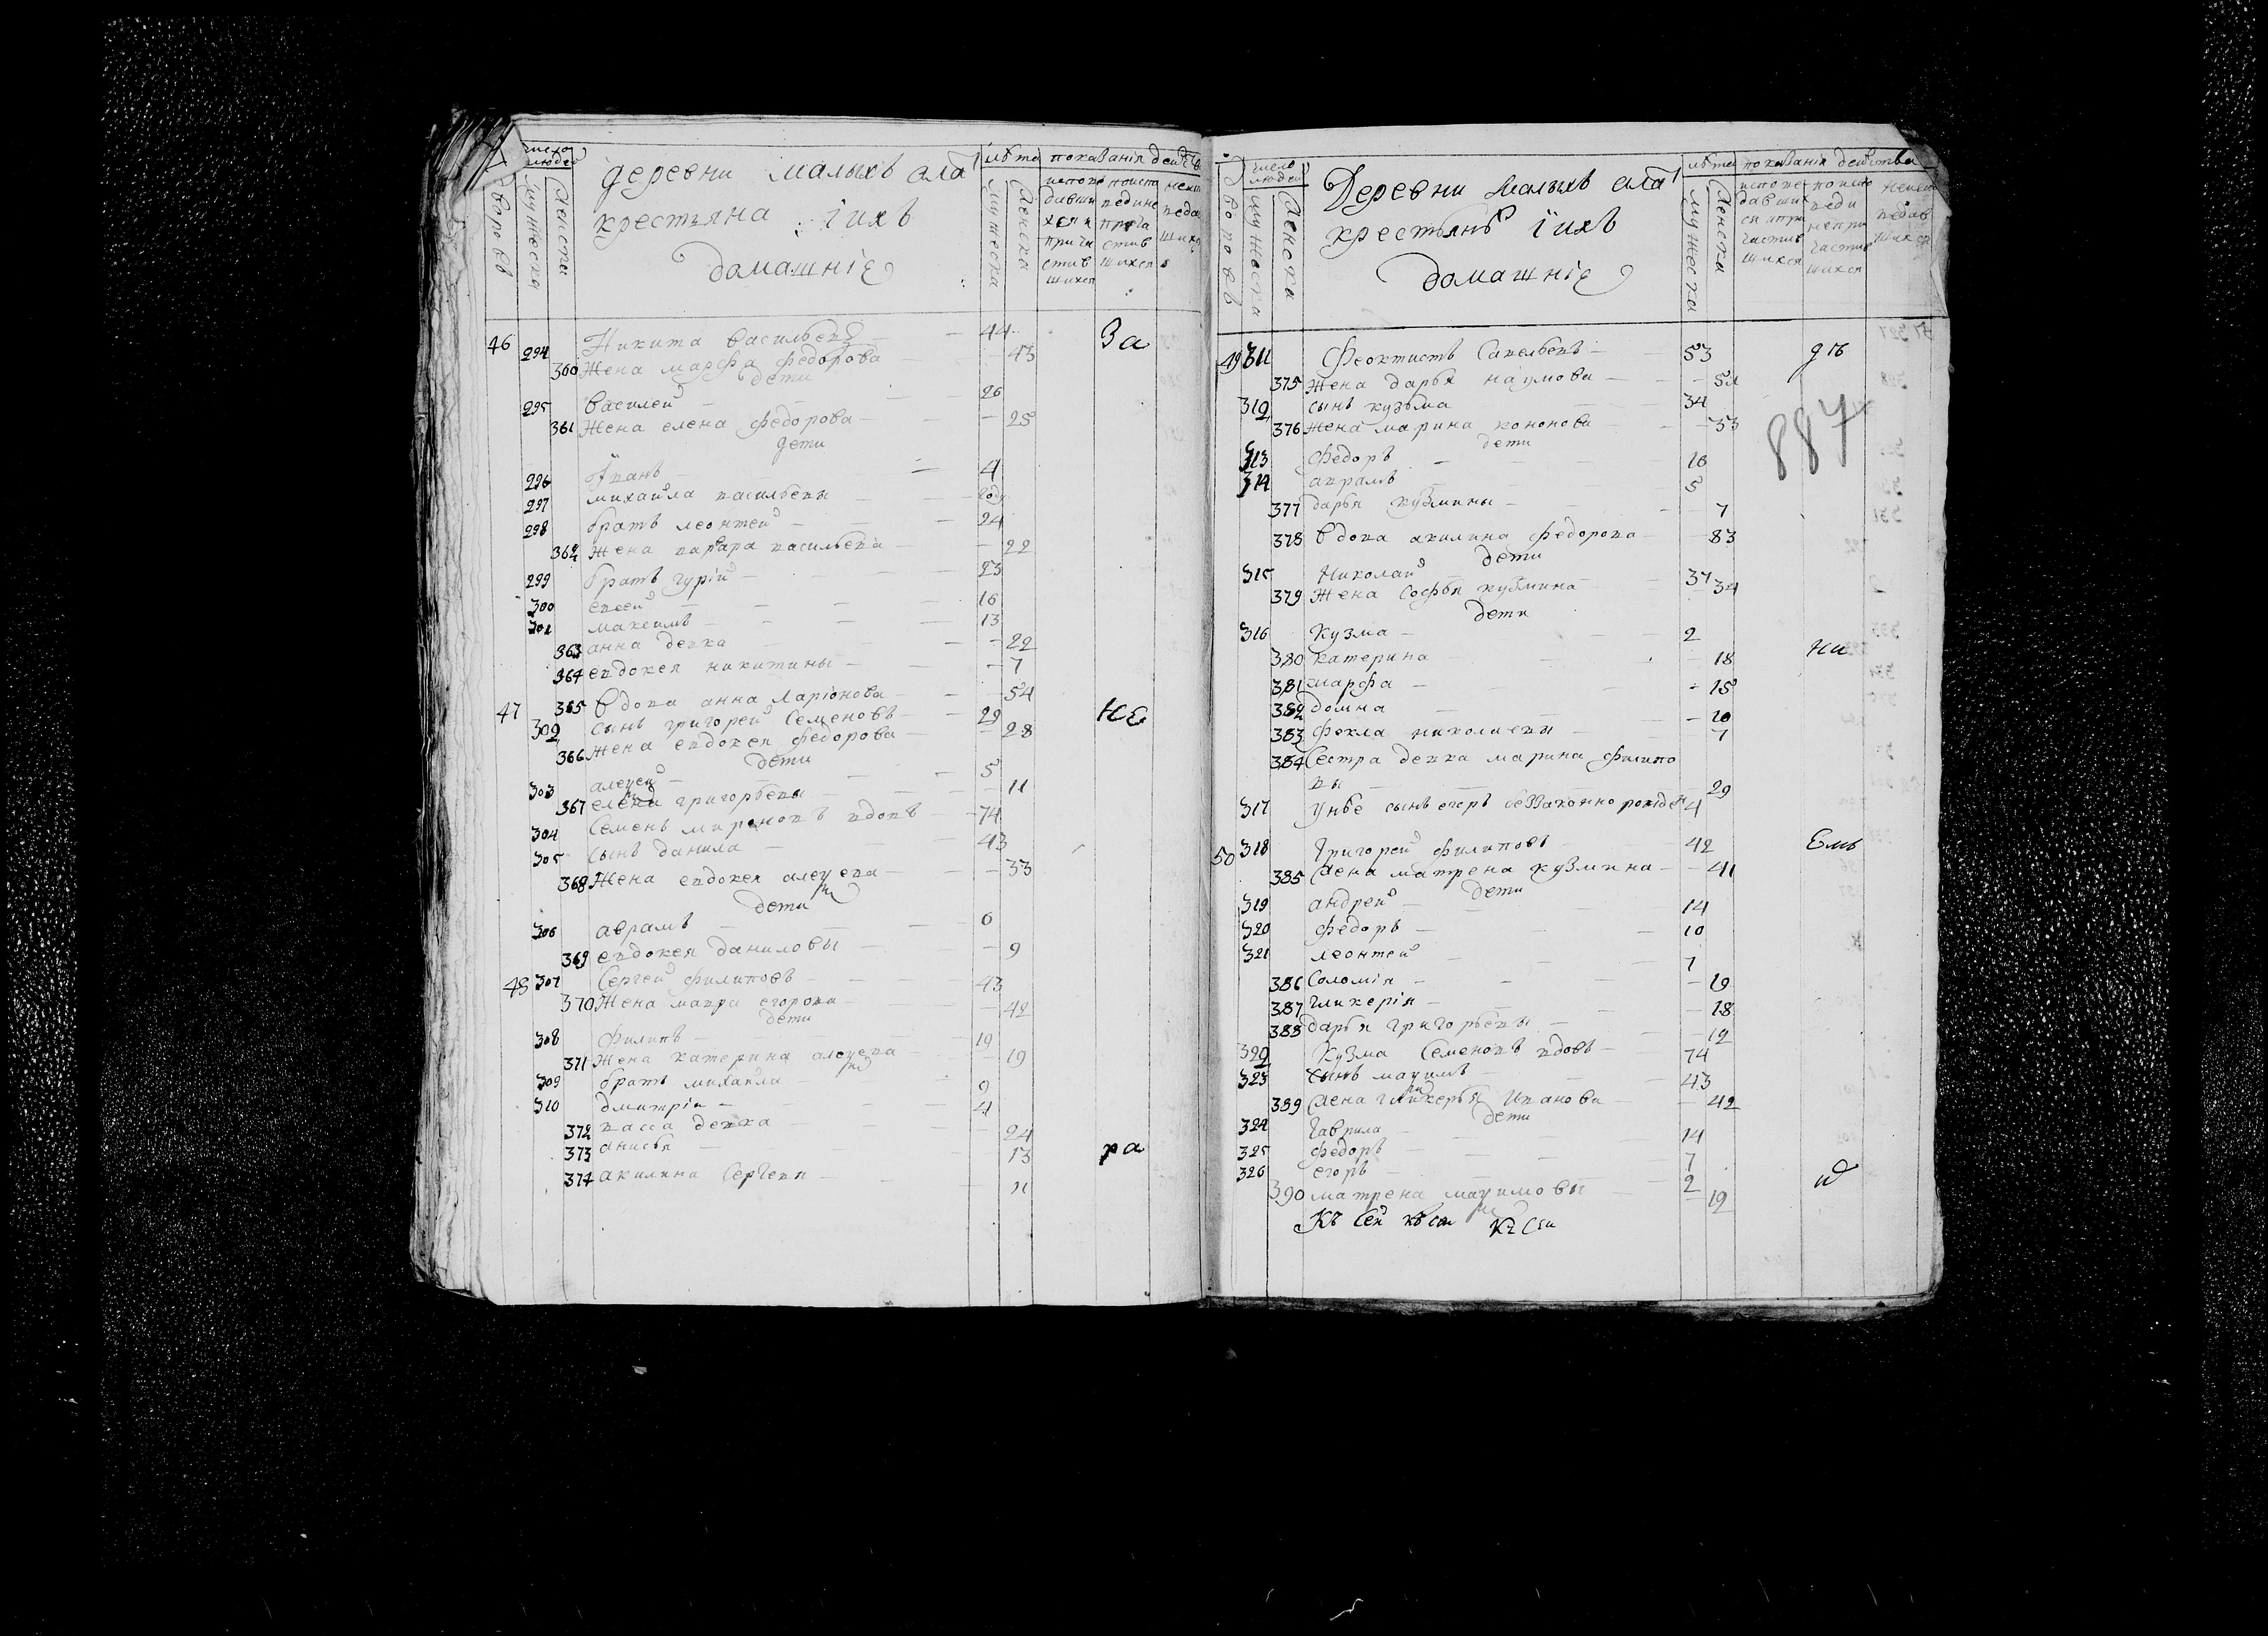 число людей
лѣта показанія действа
дворовъ
мужеска
женска
деревни малыхъ алат
крестьяна : ихъ
домашніе
мужеска
женска
испове давши хся и прича стив шихся
поиспо ведине прича стив шихся
46 294 Никита васильевъ — 44 За
360 Жена марфа федорова — 43
дети
295 Василей — 26
361 Жена елена федорова — 25
дети
296 Иванъ — 4
297 михаила васильевы — году
298 братъ леонтей — 24
362 Жена варвара васильева — 22
299 братъ гурій — 23
300 евсей — 16
301 макеимъ — 13
363 анна девка — 22
364 евдокея никитины — 7
47 365 вдова анна ларіонова — 54
302 сынъ григорей Семеновъ — 29 НЕ
366 Жена евдокея федорова — 28
дети
303 алеѯей — 5
367 елена григорьевы — 11
304 Семенъ мироновъ вдовъ — 74
305 Сынъ данила — 43
368 Жена евдокея алеѯева — 33
дети
306 аврамъ — 6
369 евдокея даниловы — 9
48 307 Сергей филиповъ — 43
370 Жена мавра егорова — 42
дети
308 филипъ — 19
371 Жена катерина алеѯева — 19
309 братъ михаила 9
310 дмитріи — 4
372 васса девка — 24
373 анисья — 13 ра
374 акилина Сергеевы — 11
число людей
лѣта показанія действа
дворовъ
мужеска
женска
Деревни малыхъ алат
крестьянъ ихъ
домашніе
мужеска
женска
испове давших ся ипри частив шихся
поиспо веди непри частив шихся
неиспо ведав шихся
49 311 Феоктистъ Савельевъ — 53 дѣ
375 Жена дарья наумова — 51
312 сынъ кузьма — 34
887
376 Жена марина кононова — 33
дети
313 федоръ — 10
314 аврамъ 5
377 дарья кузмины — 7
378 вдова акилина федорова — 83
дети
315 Николай — 37
379 Жена Софья кузмина — 34
дети
316 Кузма — 2
380 катерина 18 ни
381 марфа — 15
382 домна — 10
383 фекла николаевы — 7
384 Сестра девка марина филипо
вы — 29
317 Унее сынъ егоръ беззаконно рожде 4
50 318 Григорей филиповъ — 42 Емъ
385 Жена матрена кузмина — 41
дети
319 андрей — 14
320 федоръ — 10
321 леонтей — 1
386 Соломія — 19
387 гликерія — 18
388 дарья григорьевы — 12
322 Кузма Семеновъ вдовъ — 74
323 Сынъ маѯимъ — 43
389 Жена гликерья Иванова — 42
дети
324 Гаврила — 14
325 федоръ — 7
326 егоръ — 2
390 матрена маѯимовы — 12 й
Къ Сей